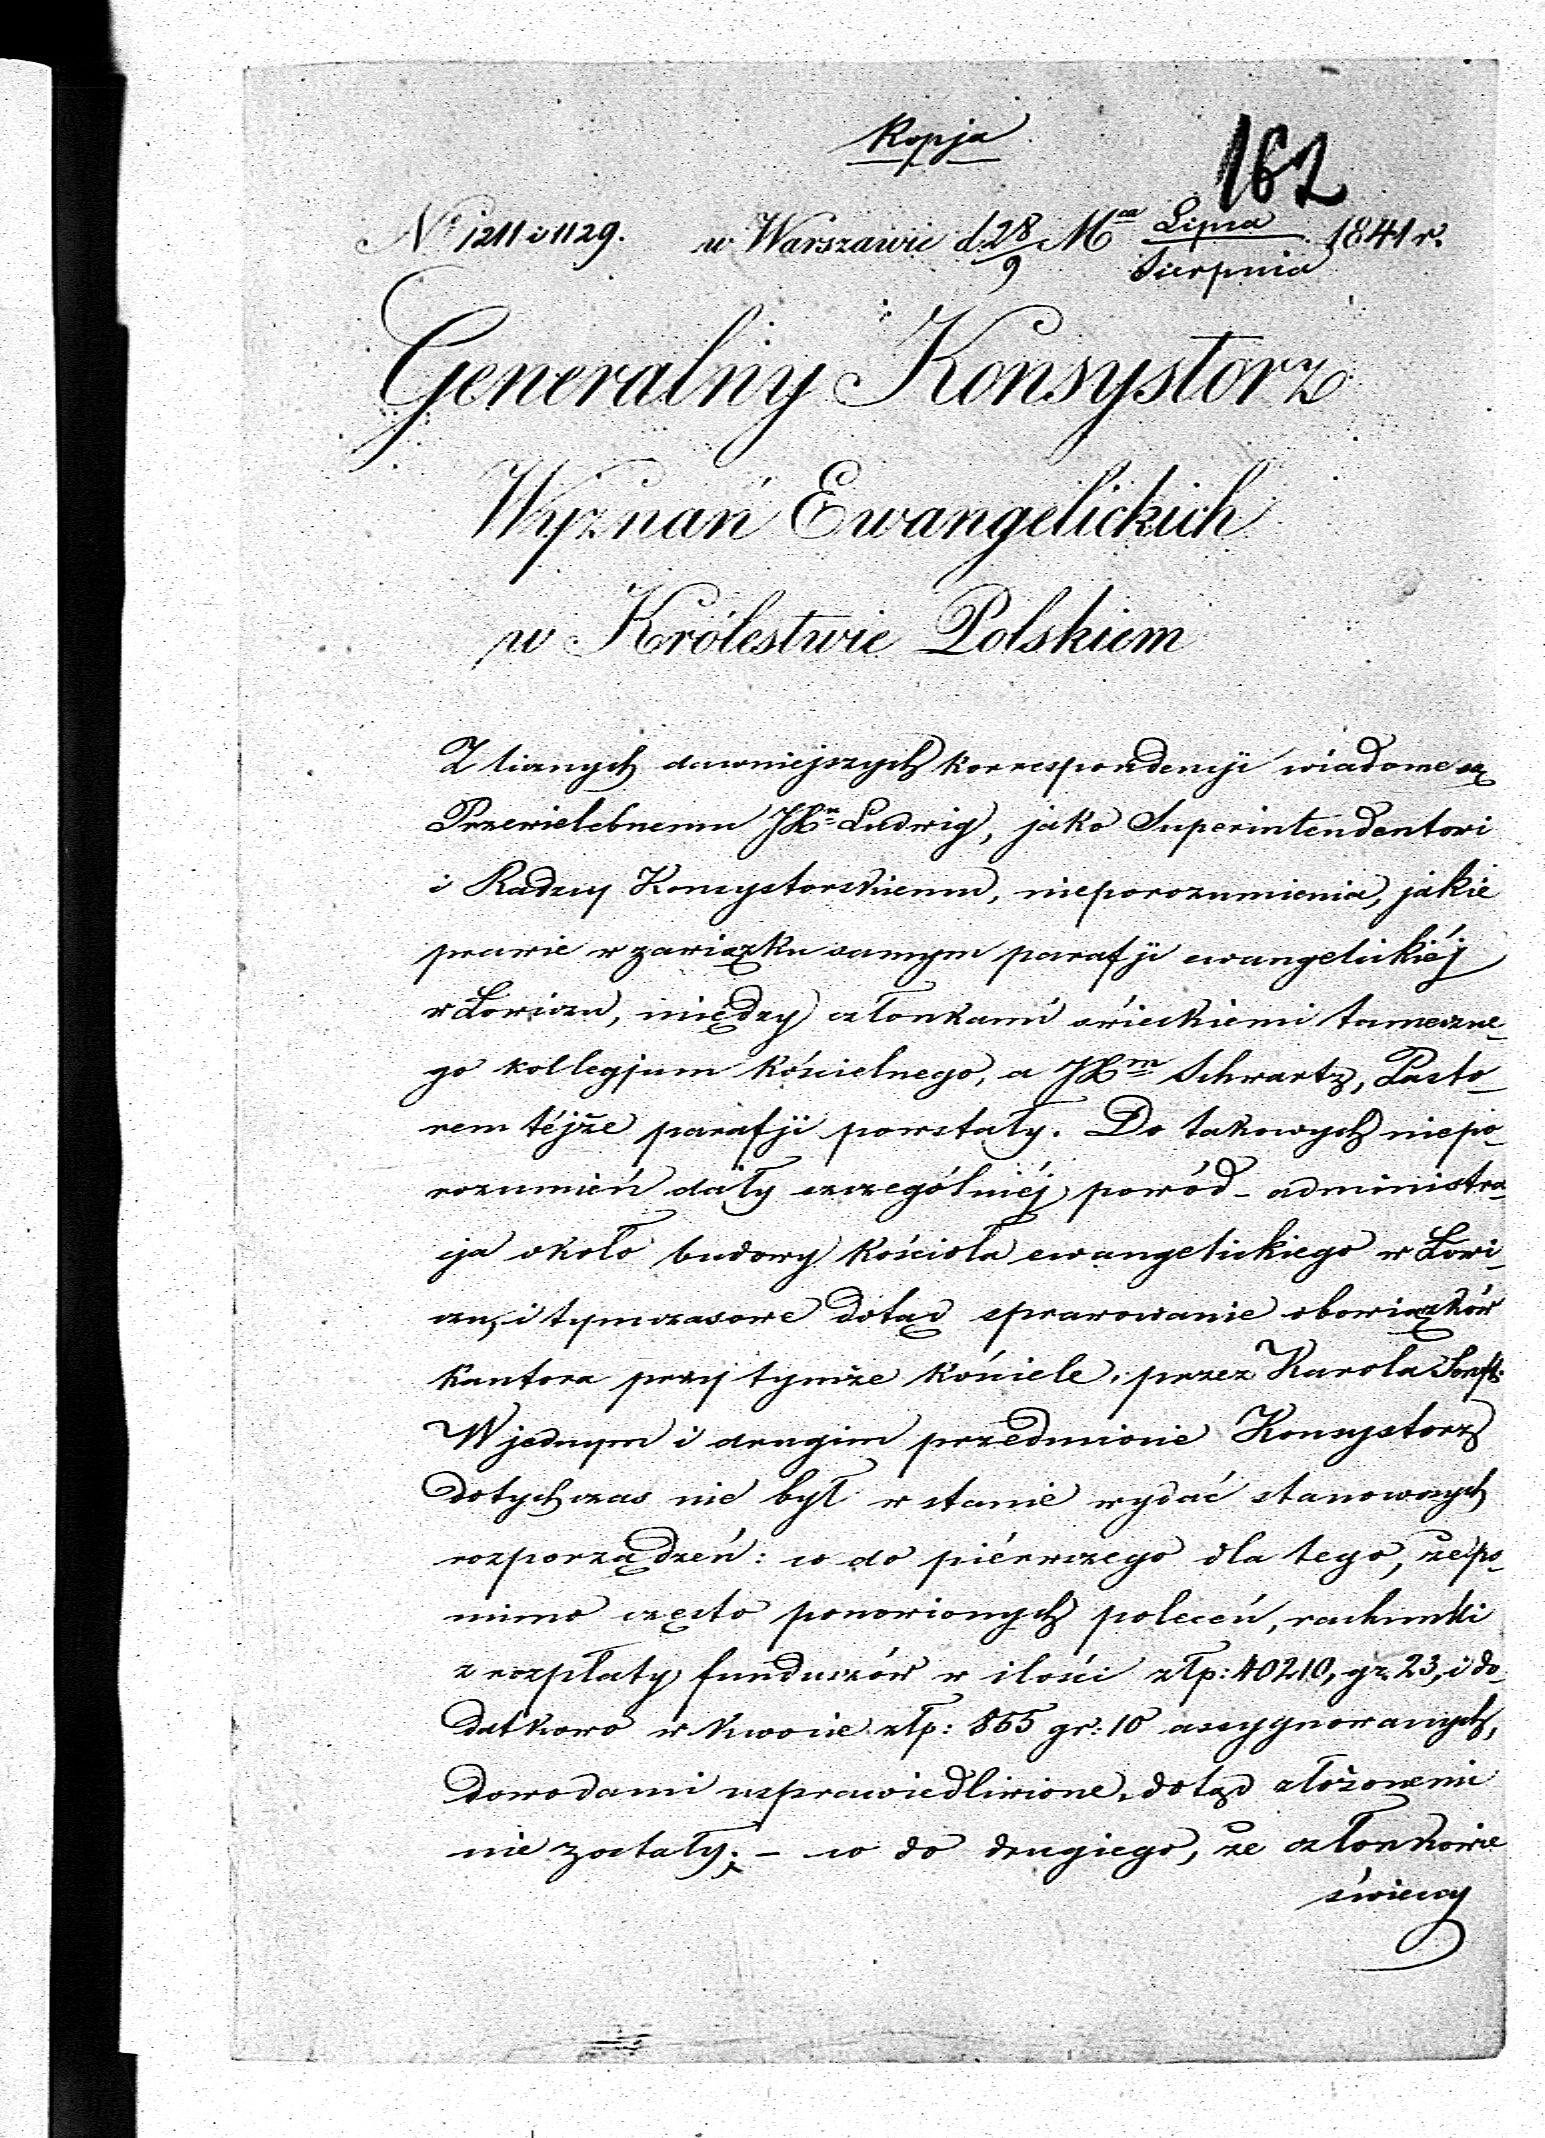 Kopja
162
Nr 1211 i 1129. w Warszawie d. 28/9 Mca Lipca/Sierpnia 1841 r.
Generalny Konsystorz
Wyznań Ewangelickich
w Królestwie Polskiem
Z licznych dawniejszych korrespondencji wiadome są
Przewielebnemu JX. Ludwig, jako Superintendentowi
i Radzcy Konsystorskiemu, nieporozumienia, jakie
prawie w zawiązku samym parafji ewangelickiéj
w Łowiczu, między członkami świeckiemi tameczne-
go kollegjum kościelnego, a JXm Schwartz, Pasto-
rem téjże parafji powstały. Do takowych niepo-
rozumień dały szczególniéj powód - administra-
cja około budowy kościoła ewangelickiego w Łowi-
czu, i tymczasowe dotąd sprawowanie obowiązków
kantora przy tymże kościele, przez Karola
W jednym i drugim przedmiocie Konsystorz
dotychczas nie był w stanie wydać stanowczych
rozporządzeń: co do piérwszego dla tego, że po-
mimo często ponowionych poleceń, rachunki
z wypłaty funduszów w ilości złp: 40210, gr. 23, i do-
datkowo w kwocie złp: 855 gr: 10 assygnowanych,
dowodami usprawiedliwione, dotąd złożonemi
nie zostały; - co do drugiego, że członkowie
świeccy